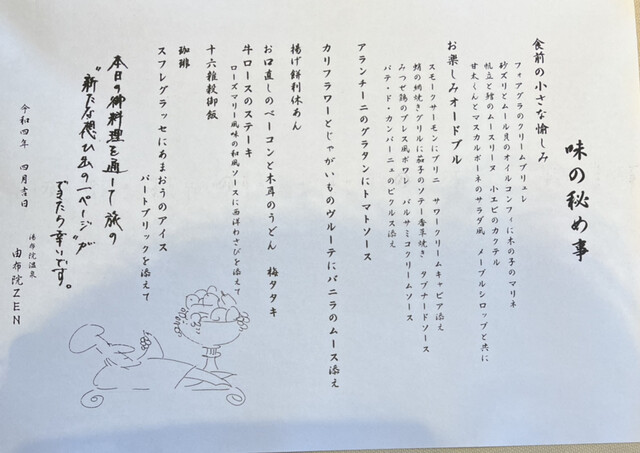 味の秘め事
食前の小さな愉しみ
フォアグラのクリームブリュレ
砂ズリとムール貝のオイルコンフィに木の子のマリネ
帆立と鱈のムースリーヌ 小エビのカクテル
甘太くんとマスカルポーネのサラダ風 メープルシロップと共に
お楽しみオードブル
スモークサーモンにブリニ サワークリームキャビア添え
蛸の網焼きグリルに茄子のソテー香草焼き タプナードソース
みつせ鶏のブレス風ポワレ バルサミコクリームソース
パテ・ド・カンパーニュのピクルス添え
アランチーニのグラタンにトマトソース
カリフラワーとじゃがいものヴルーテにバニラのムース添え
揚げ餅利休あん
お口直しのベーコンと木耳のうどん 梅タタキ
牛ロースのステーキ
ローズマリー風味の和風ソースに西洋わさびを添えて
十六雑穀御飯
珈琲
スフレグラッセにあまおうのアイス
パートブリックを添えて
本日の御料理を通して旅の
“新たな想ひ出の一ページ”が
できたら幸いです。
令和四年 四月吉日
湯布院温泉
由布院ZEN